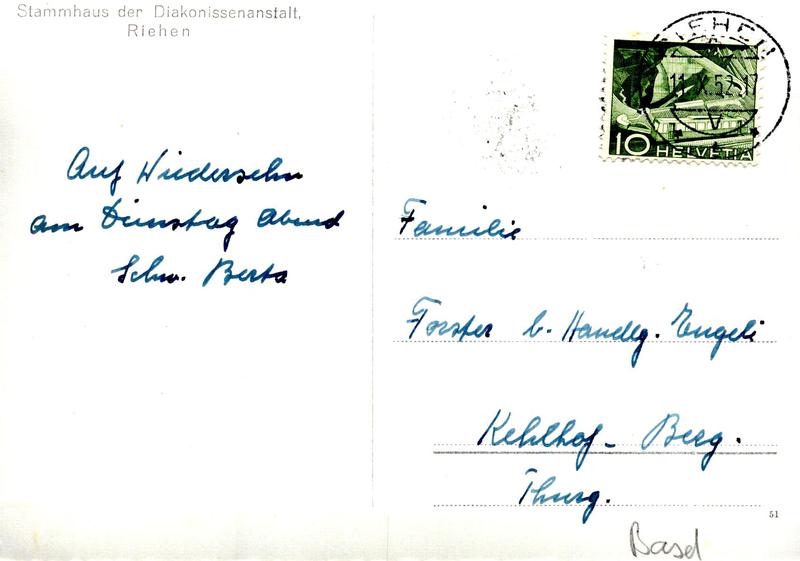 Stammhaus der Diakonissenanstalt,
Riehen
RIEHEN
11.X.52-17
V
10 HELVETIA
Auf Wiedersehn
am Dienstag Abend
Schw. Berta
Familie
Forster b. Handlg. Engeli
Kehlhof - Berg.
Thurg.
51
Basel